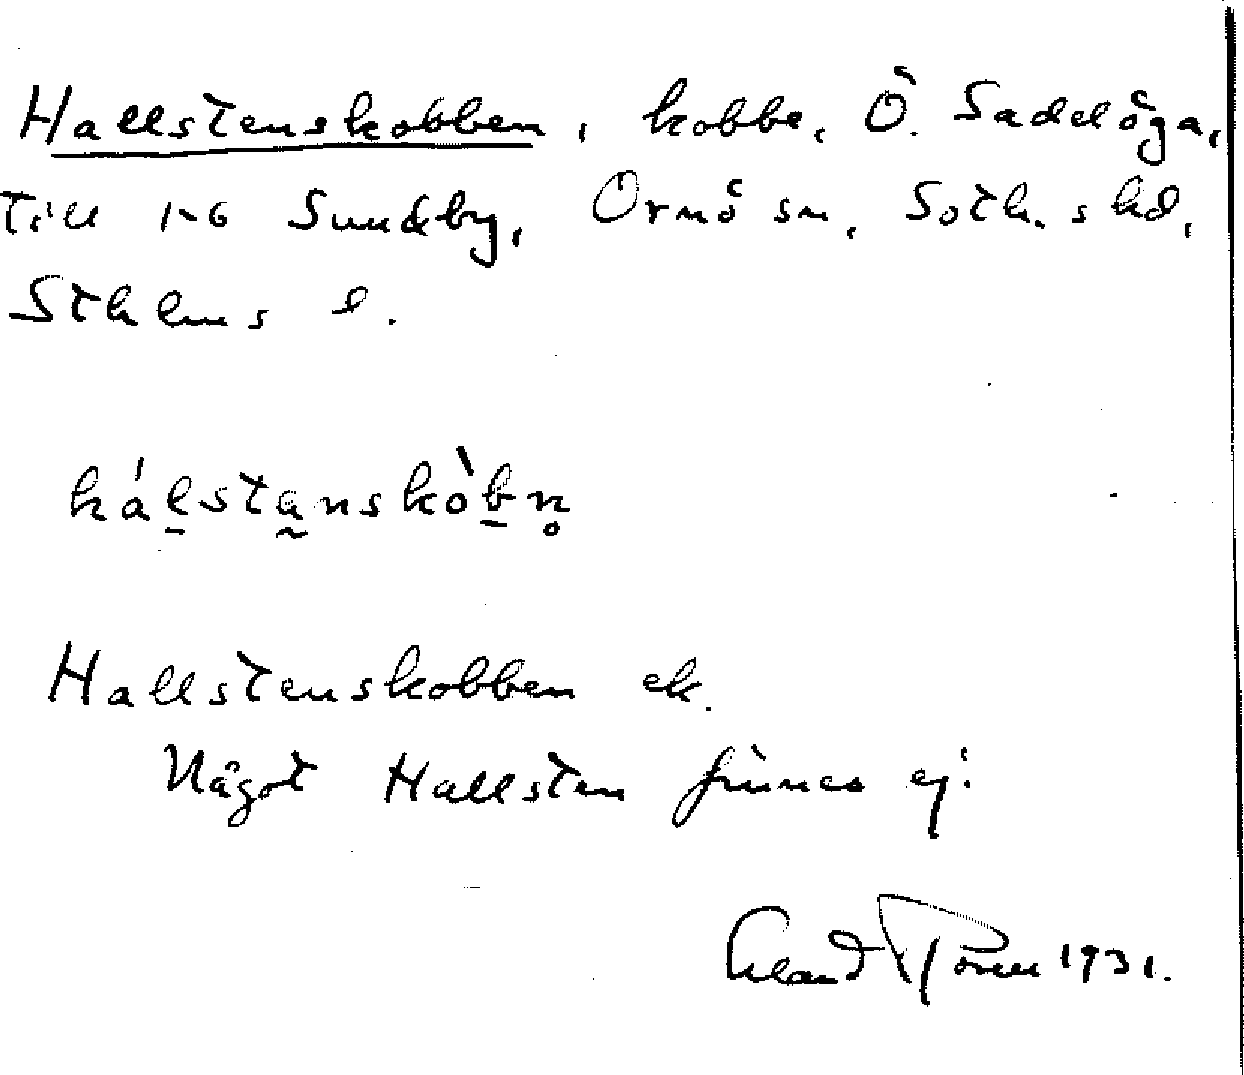 Hallstenskobben, kobbe, Ö. Saddöga,
till 1-6 Sundby, Ornö sn, Soth. s hd,
Sthlms l.
hálstanskòbn̥
Hallstenskobben ek.
Något Hallsten finnes ej.
Rosell 1931.